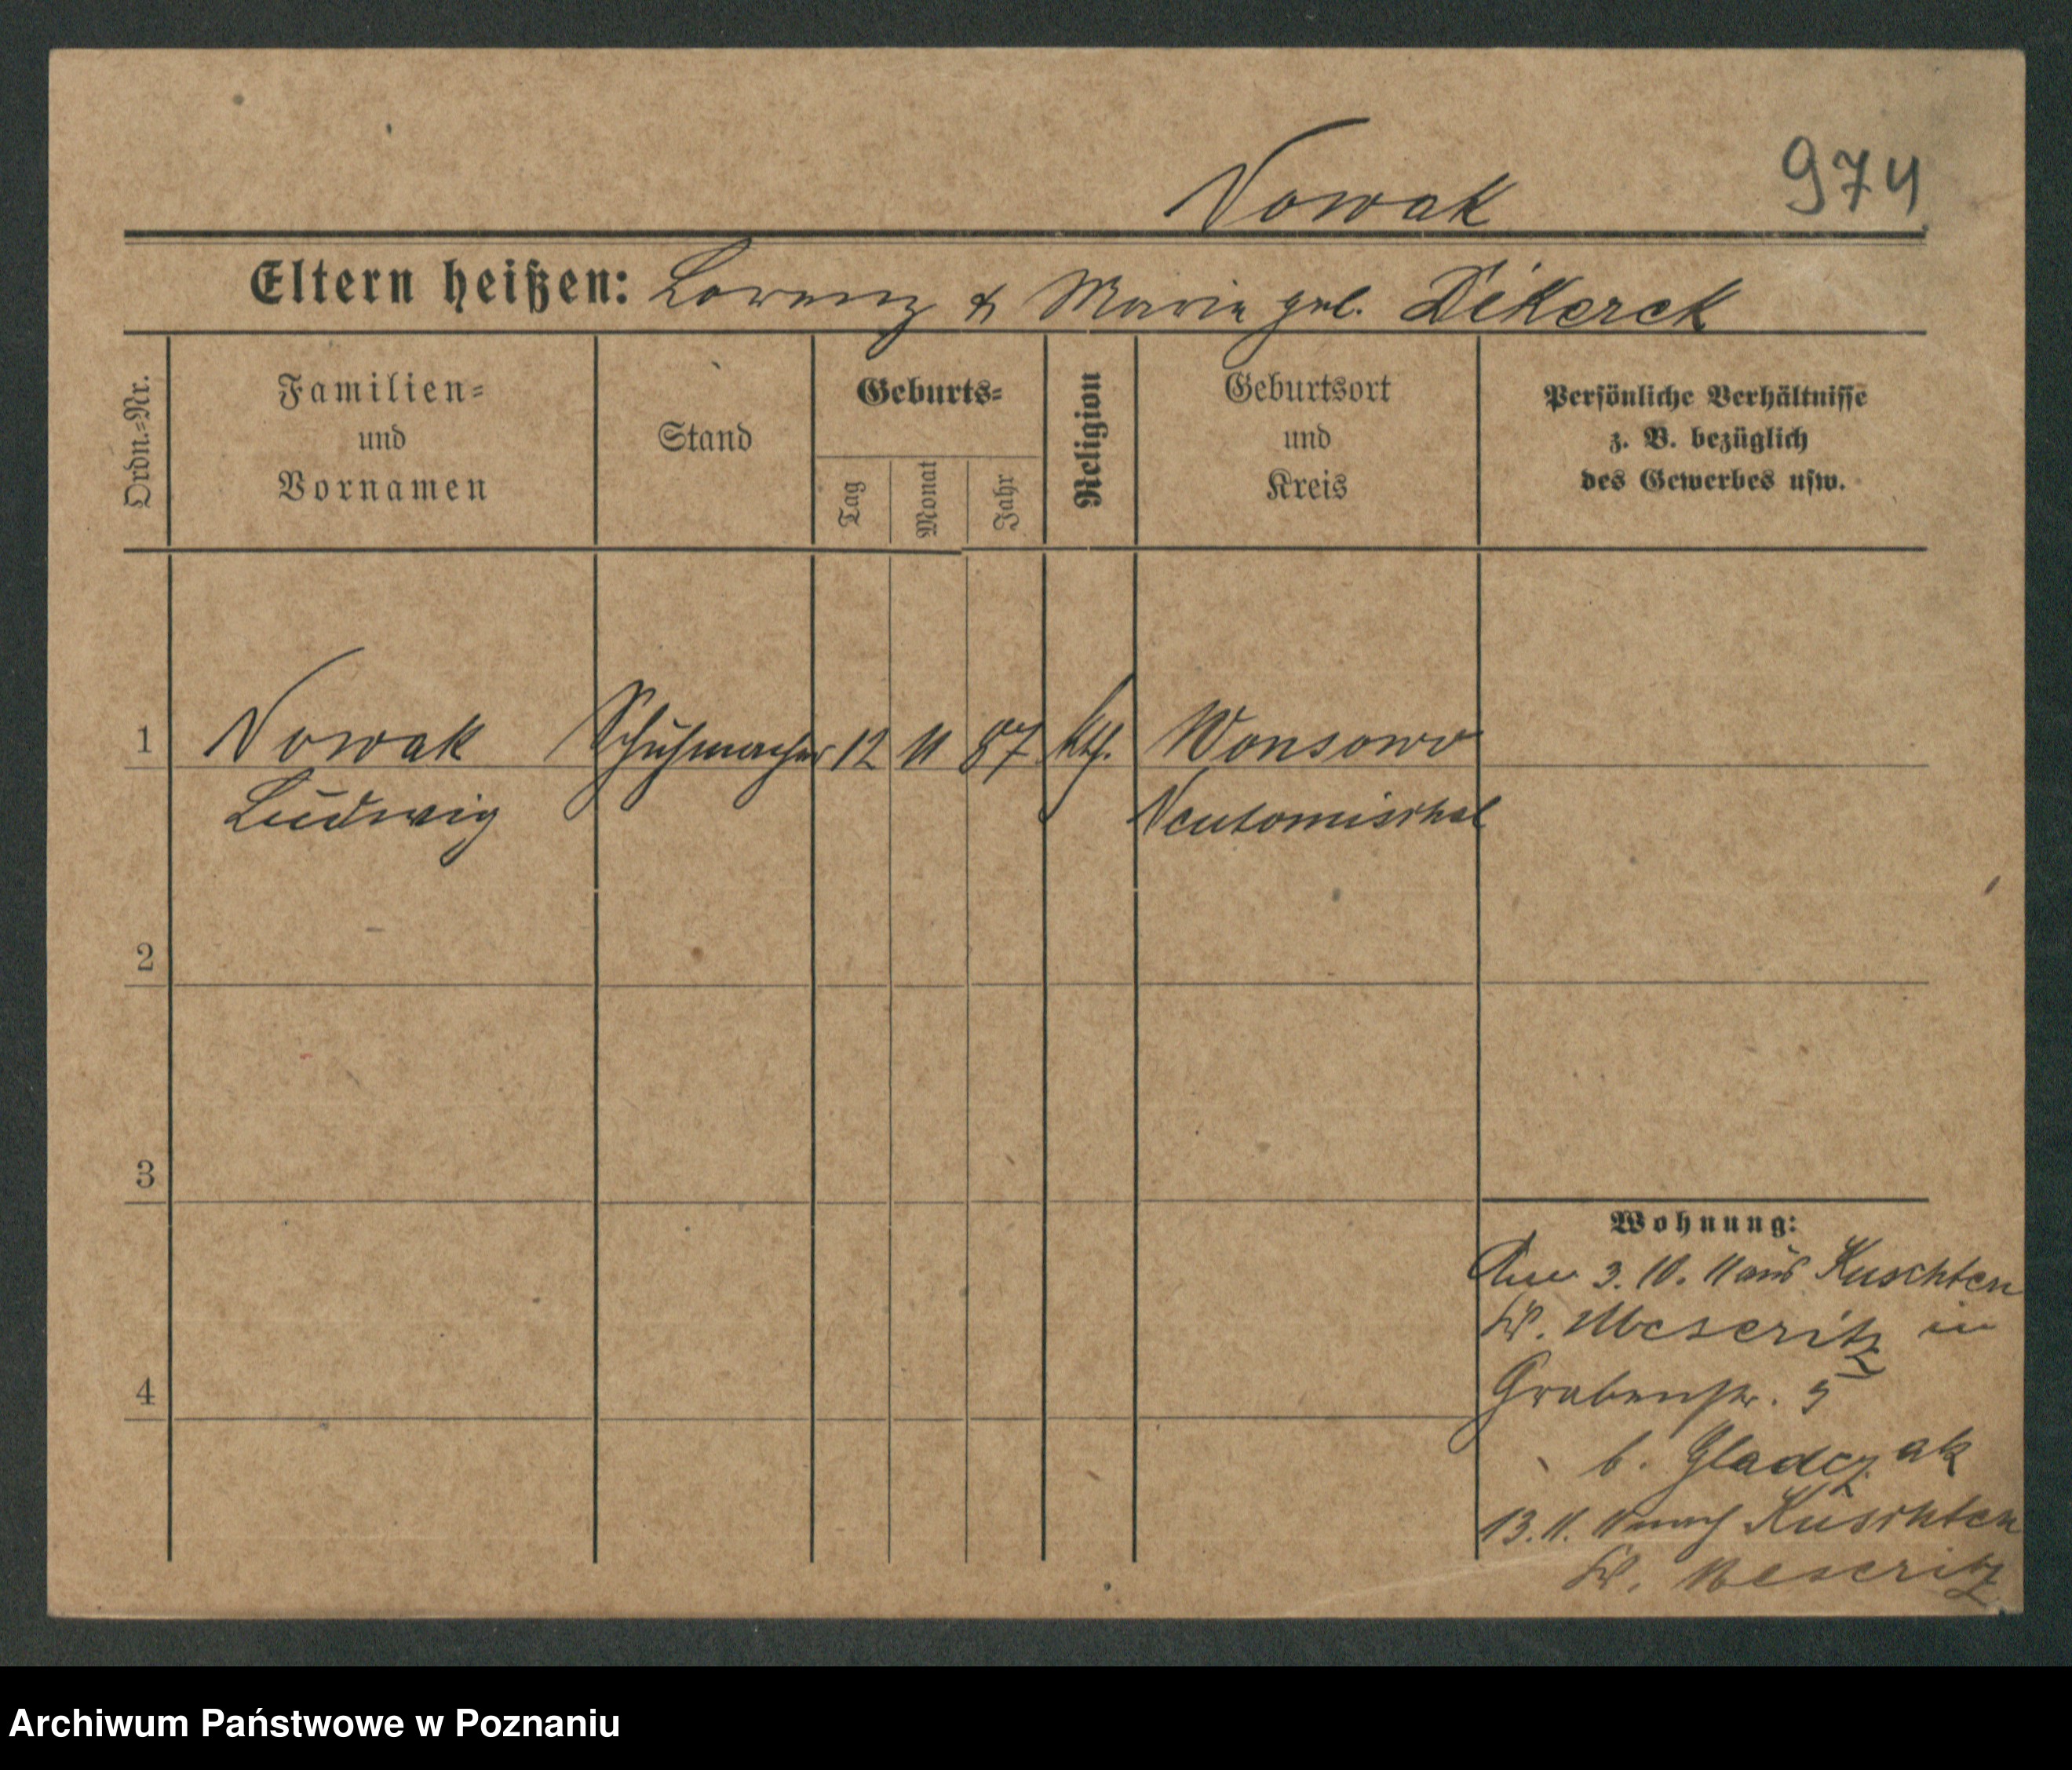 Nowak 974
Eltern heißen: Lorenz & Marie geb. Dikerck
Ordn.-Nr.
Familien-
und
Vornamen
Stand
Geburts-
Tag
Monat
Jahr
Religion
Geburtsort
und
Kreis
Persönliche Verhältnisse
z. B. bezüglich
des Gewerbes usw.
1 Nowak Schuhmacher 12 11 87 kth. Wonsowo
Ludwig Neutomischel
2
3
Wohnung:
3. 10. 11 aus Kuschten
Kr. Meseritz in
4
Grabenstr. 5
b. Gladczak
13. 11. 11 nach Kuschten
Kr. Meseritz
Archiwum Państwowe w Poznaniu